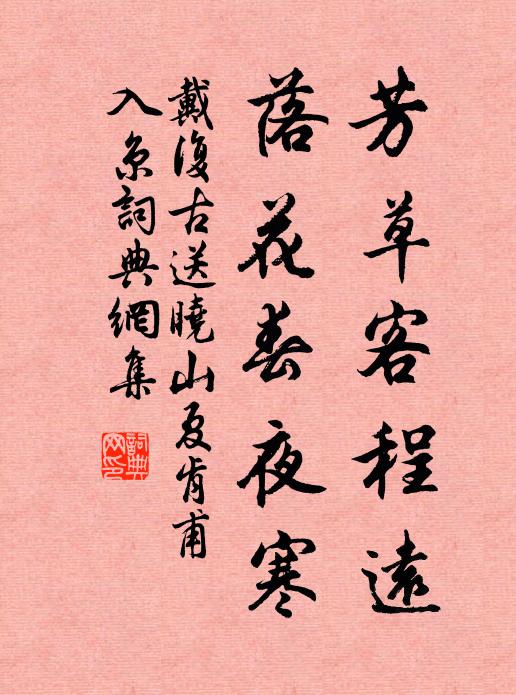 芳草客程遠
落花春夜寒
戴復古送曉山夏肯甫
入京詞典網集
詞典網印